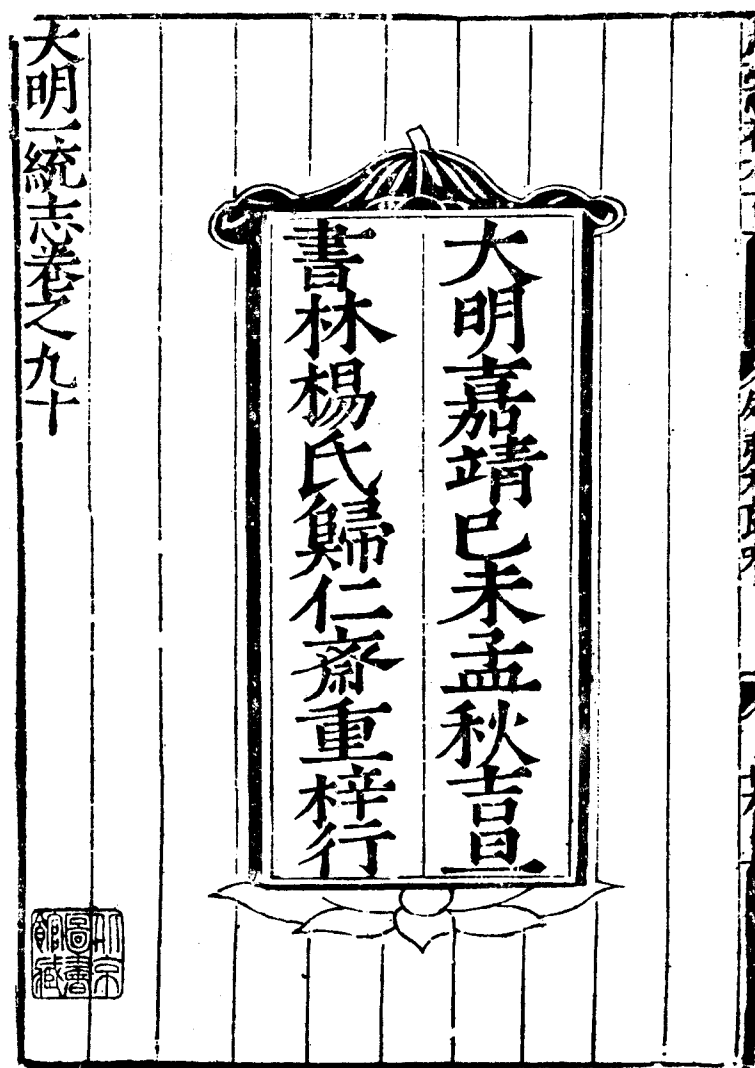 大明嘉靖己未孟秋吉旦
書林楊氏歸仁齋重梓行
大明一統志卷之九十
北京
圖書
館藏